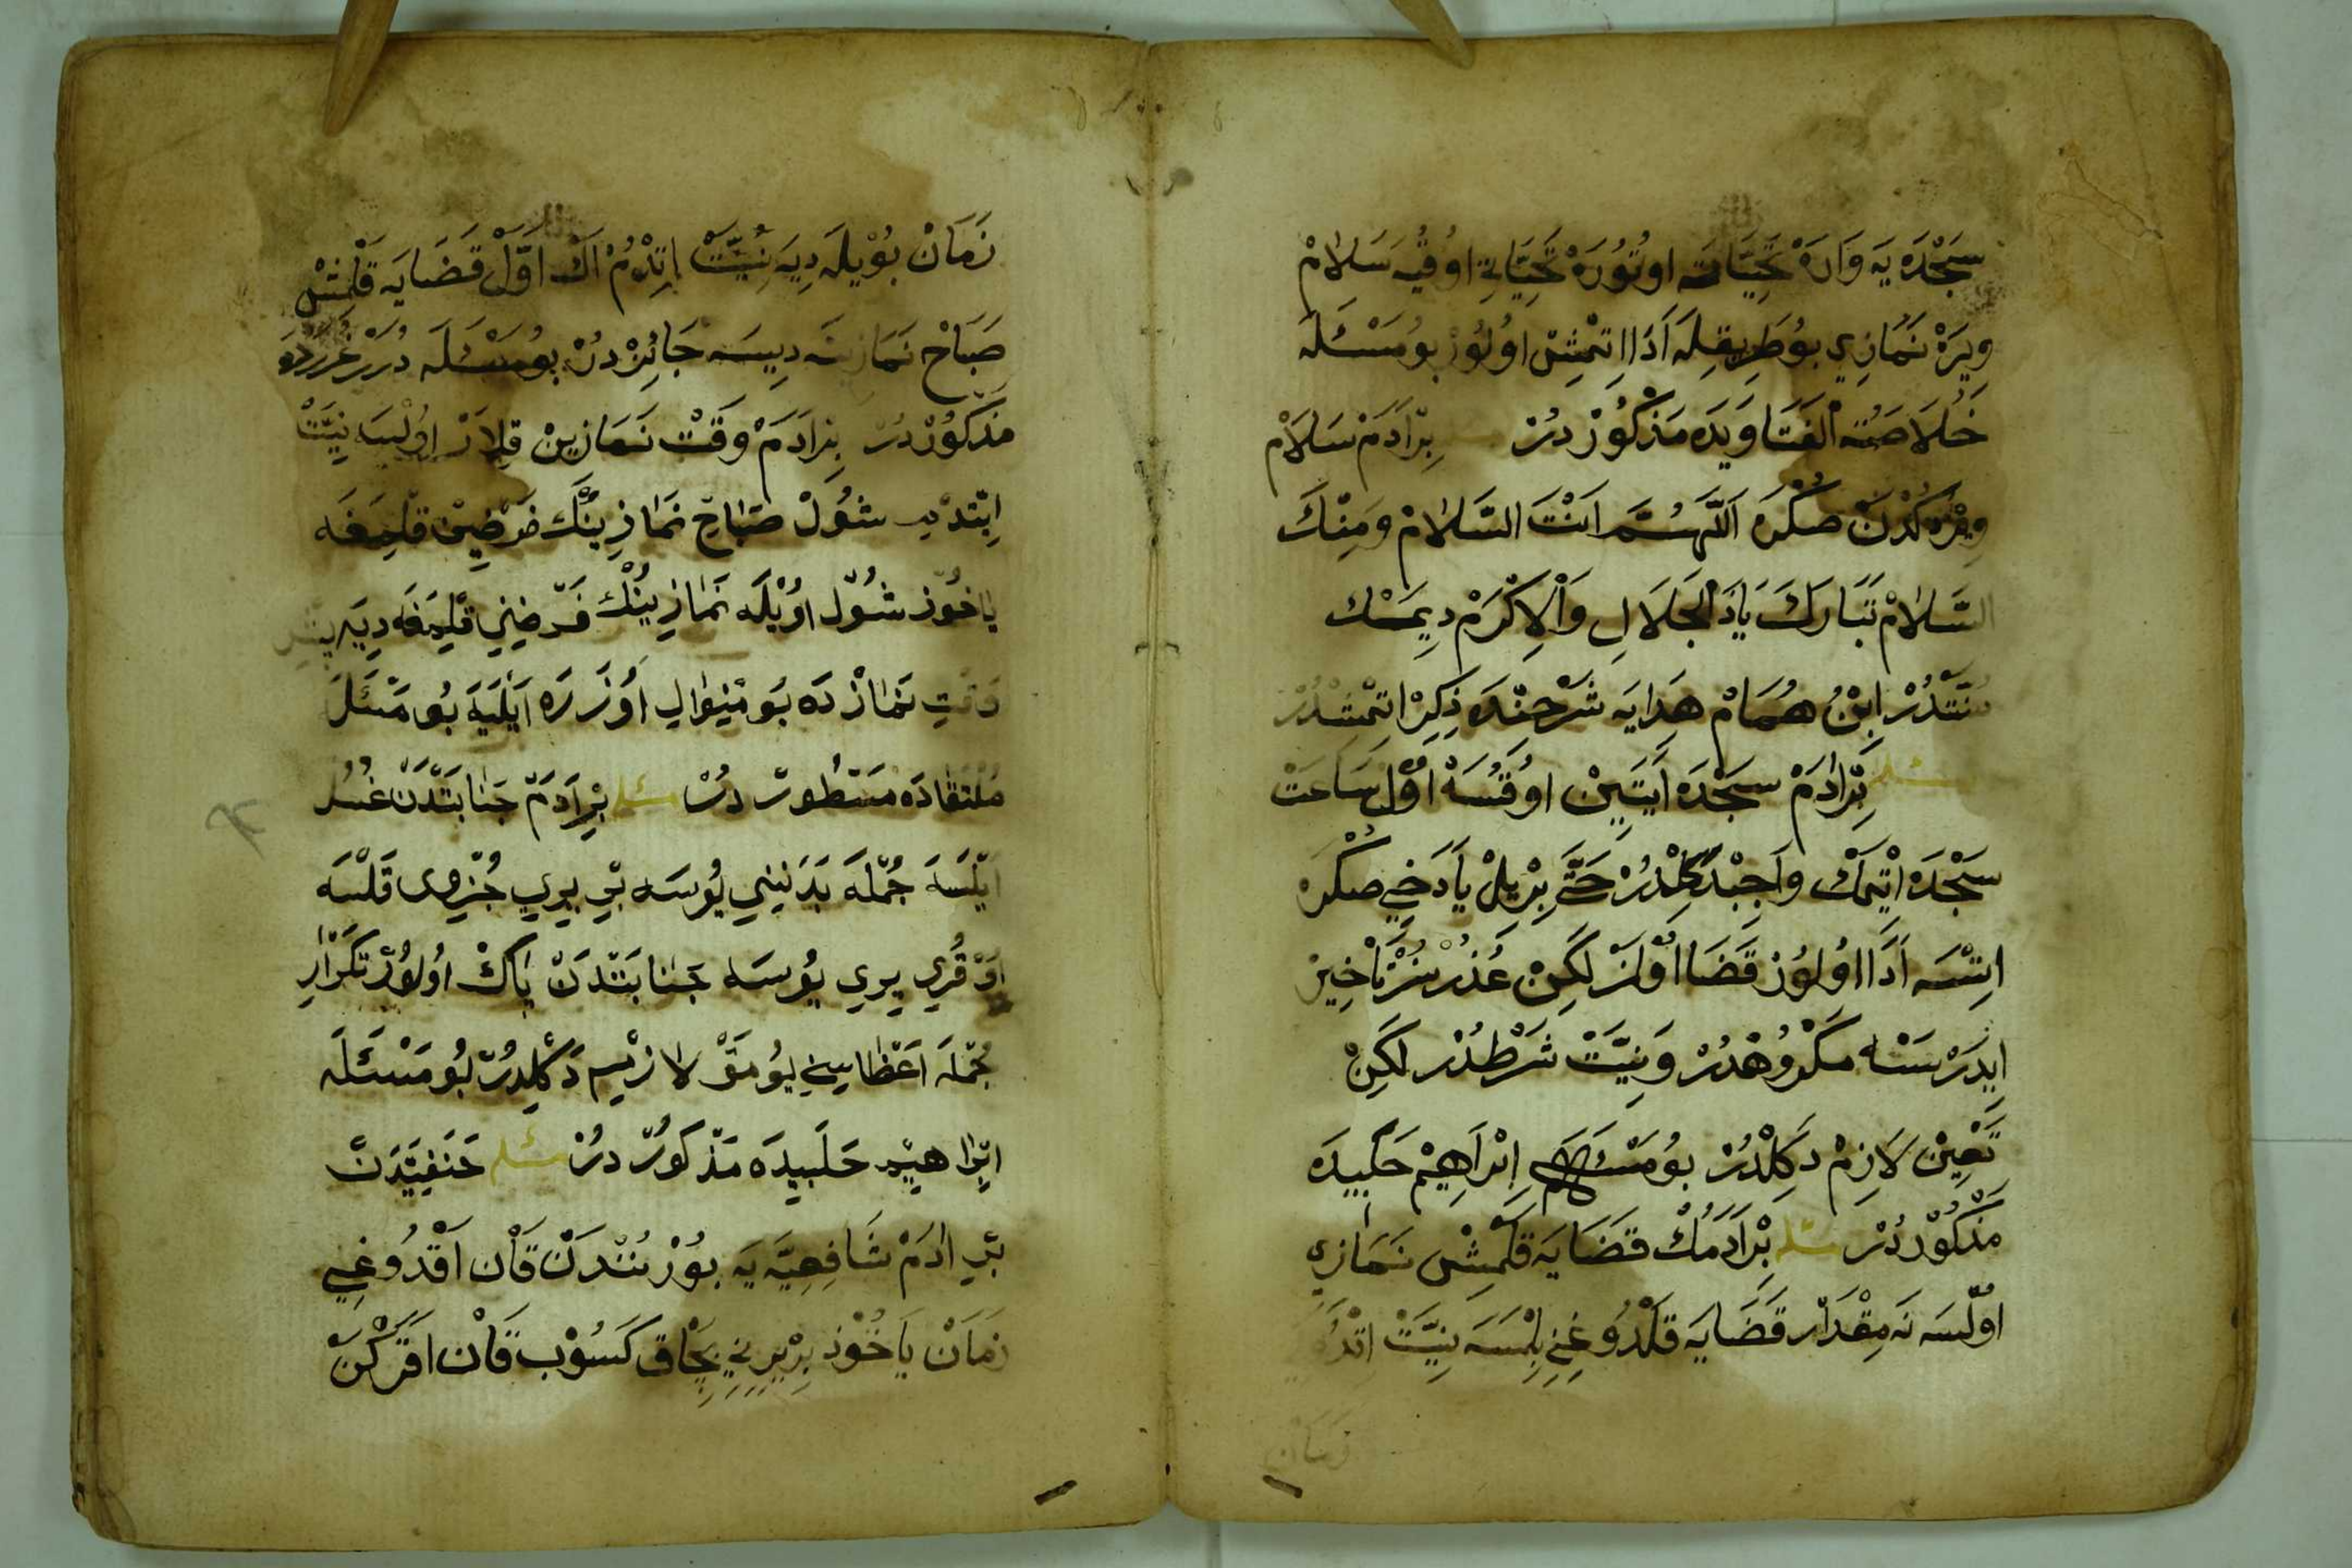 سَجْدَه يَه وَارَهْ تَحِيَّاتَه اوتُورَهْ تَحِيَّاتِ اوقُيَه سَلَامْ
وِيرَهْ نَمَازِي بُو طَرِيقِلَه اَدَا اِتْمِشْ اوُلُورْ بُو مَسْئَلَه
خُلَاصَةُ الْفَتَاوَيدَه مَذْكُورْ دُرْ بِرْ اَدَمْ سَلَامْ
وِيرْدُكْدَنْ صُكْرَه اَللّٰهُمَّ اَنْتَ السَّلَامْ وَمِنْكَ
السَّلَامْ تَبَارَكَ يَاذَ الْجَلَالِ وَالْاِكْرَمْ دِيمَكْ
سُنَّتْدُرْ اِبْنُ هُمَامْ هِدَايَه شَرْحِنْدَه ذِكِرْ اتْمِشْدُرْ
مسئله بِرْ اٰدَمْ سَجْدَه اَيَتِينْ اوُقُسَهْ اوُّلْ سَاعَتْ
سَجْدَه اتْمَكْ وَاجِبْ دَكِلْدُرْ حَتَّى بِرْ يِلْ يَادَخِي صُكْرَه
اتْسَه اَدَا اوُلُورْ قَضَا اوُلْمَزْ لَكِنْ عُذُرْسُزْ تَاْخِيرْ
ايدَرْسَه مَكْرُوهْدُرْ وَنِيَّتْ شَرْطْدُرْ لَكِنْ
تَعْيِينْ لَازِمْ دَكِلْدُرْ بُو مَسْئَله اِبْرَاهِيمْ حَلَبِيدَه
مَذْكُورْدُرْ مسئله بِرْ اَدَمُكْ قَضَايَه قَلْمِشْ نَمَازِي
اوُلْسَه نَه مِقْدَارْ قَضَايَه قَلْدُوغِنِي بِلْمَسَه نِيَّتْ اِتْدُكِ
زمان
زَمَانْ بُويْلَه دِيَه نِيَّتْ اِتْدُمْ اَكْ اَوَّلْ قَضَايَه قَلْمِشْ
صَبَاحْ نَمَازِينَه دِيسَه جَائِزْدُرْ بُو مَسْئَلَه دُرَرْ غُرَرْدَه
مَذْكُورْدُرْ بِرْ اَدَمْ وَقْتْ نَمَازِينْ قِلَارْ اوُلْسَه نِيَّتْ
اِيتْدِيمْ شُولْ صَبَاحْ نَمَازِينُكْ فَرْضِينْ قِلْمَغَه
يَاخُوذْ شُولْ اوُيْلَه نَمَازِينُكْ فَرْضِنِي قِلْمَغَه دِيَه بَشْ
وَقْتِ نَمَازْدَه بُو مِنْوَالِ اوُزَرَه اَيْلَيَه بُو مَسْئَلَه
مُلْتَقَادَه مَسْطُورْ دُرْ مسئله بِرْ اَدَمْ جَنَابَتْدَنْ غُسُلْ
اَيْلَسَه جُمْلَه بَدَنِينِي يُوسَه بِّرْ يِرِي جُزْوِى قَلْسَه
اوُلْ قُرِي يِرِي يُوسَه جَنَابَتْدَنْ پَاكْ اوُلُورْ تَكْرَارِ
جُمْلَه اَعْظَاسِنِي يُومَقْ لَازِيمْ دَكِلْدُرْ بُو مَسْئَلَه
اِبْرَاهِيمْ حَلَبِيدَه مَذْكُورْ دُرْ مسئله حَنَفِيَّدَنْ
بِّرْ اٰدَمْ شَافِعِيَّه يَه بُورْنُنْدَنْ قَانْ اَقْدُوغِي
زَمَانْ يَاخُوْذ بِرْ يِرِينِي بِچَاقْ كَسُوبْ قَانْ اقَرْكَنْ